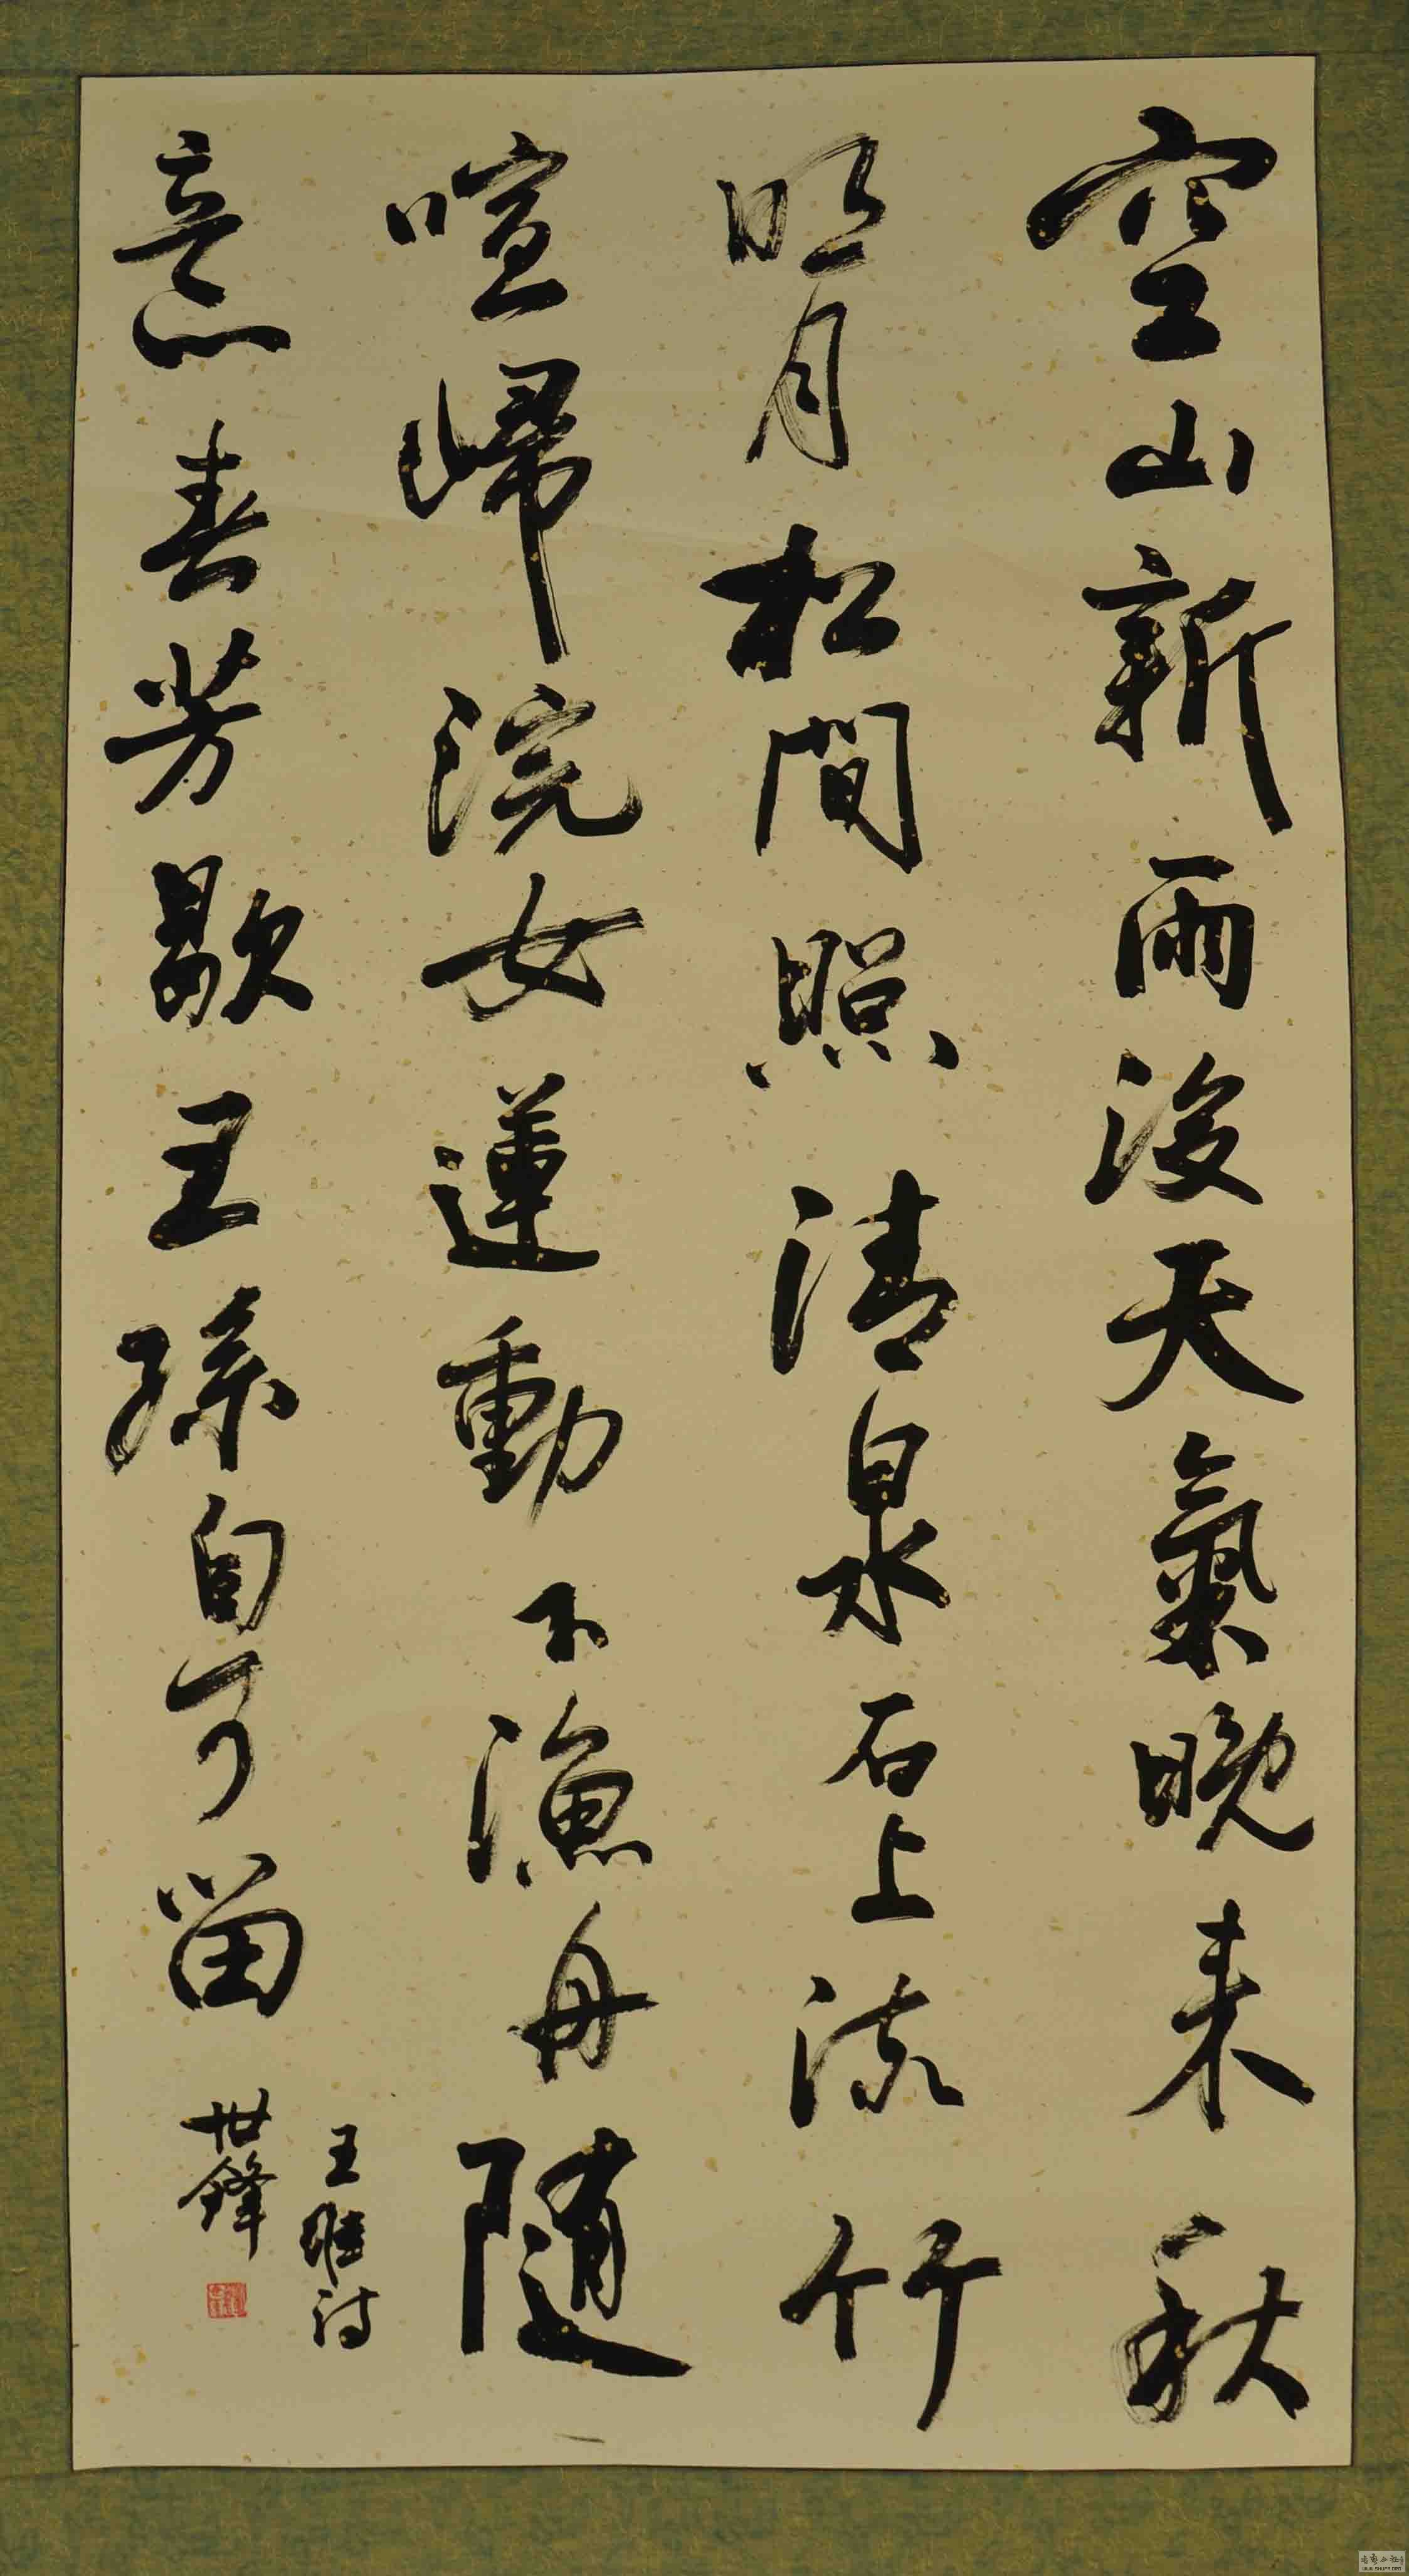 空山新雨後天氣晚来秋
明月松間照清泉石上流竹
喧歸浣女蓮動下漁舟随
意春芳歇王孫自可留
王維詩
世鋒